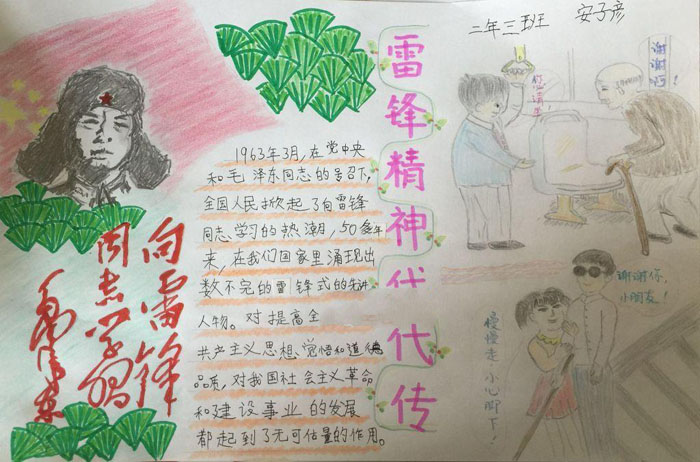 二年三班 安子彦
雷锋精神代代传
1963年3月,在党中央
和毛泽东同志的号召下,
全国人民掀起了向雷锋
同志学习的热潮,50多年
来,在我们国家里涌现出
数不完的雷锋式的先进
人物。对提高全
共产主义思想觉悟和道德
品质,对我国社会主义革命
和建设事业的发展
都起到了无可估量的作用。
向雷锋
同志学习
毛泽东
您请坐
谢谢你!
谢谢你,
小朋友!
慢慢走,小心脚下!